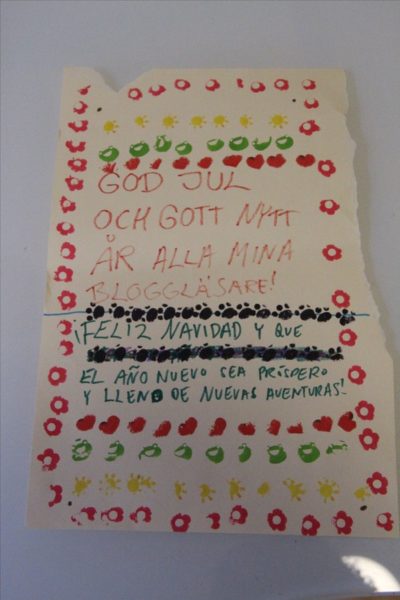 GOD JUL
OCH GOTT NYTT
ÅR ALLA MINA
BLOGGLÄSARE!
¡FELIZ NAVIDAD Y QUE
EL AÑO NUEVO SEA PRÓSPERO
Y LLENO DE NUEVAS AVENTURAS!